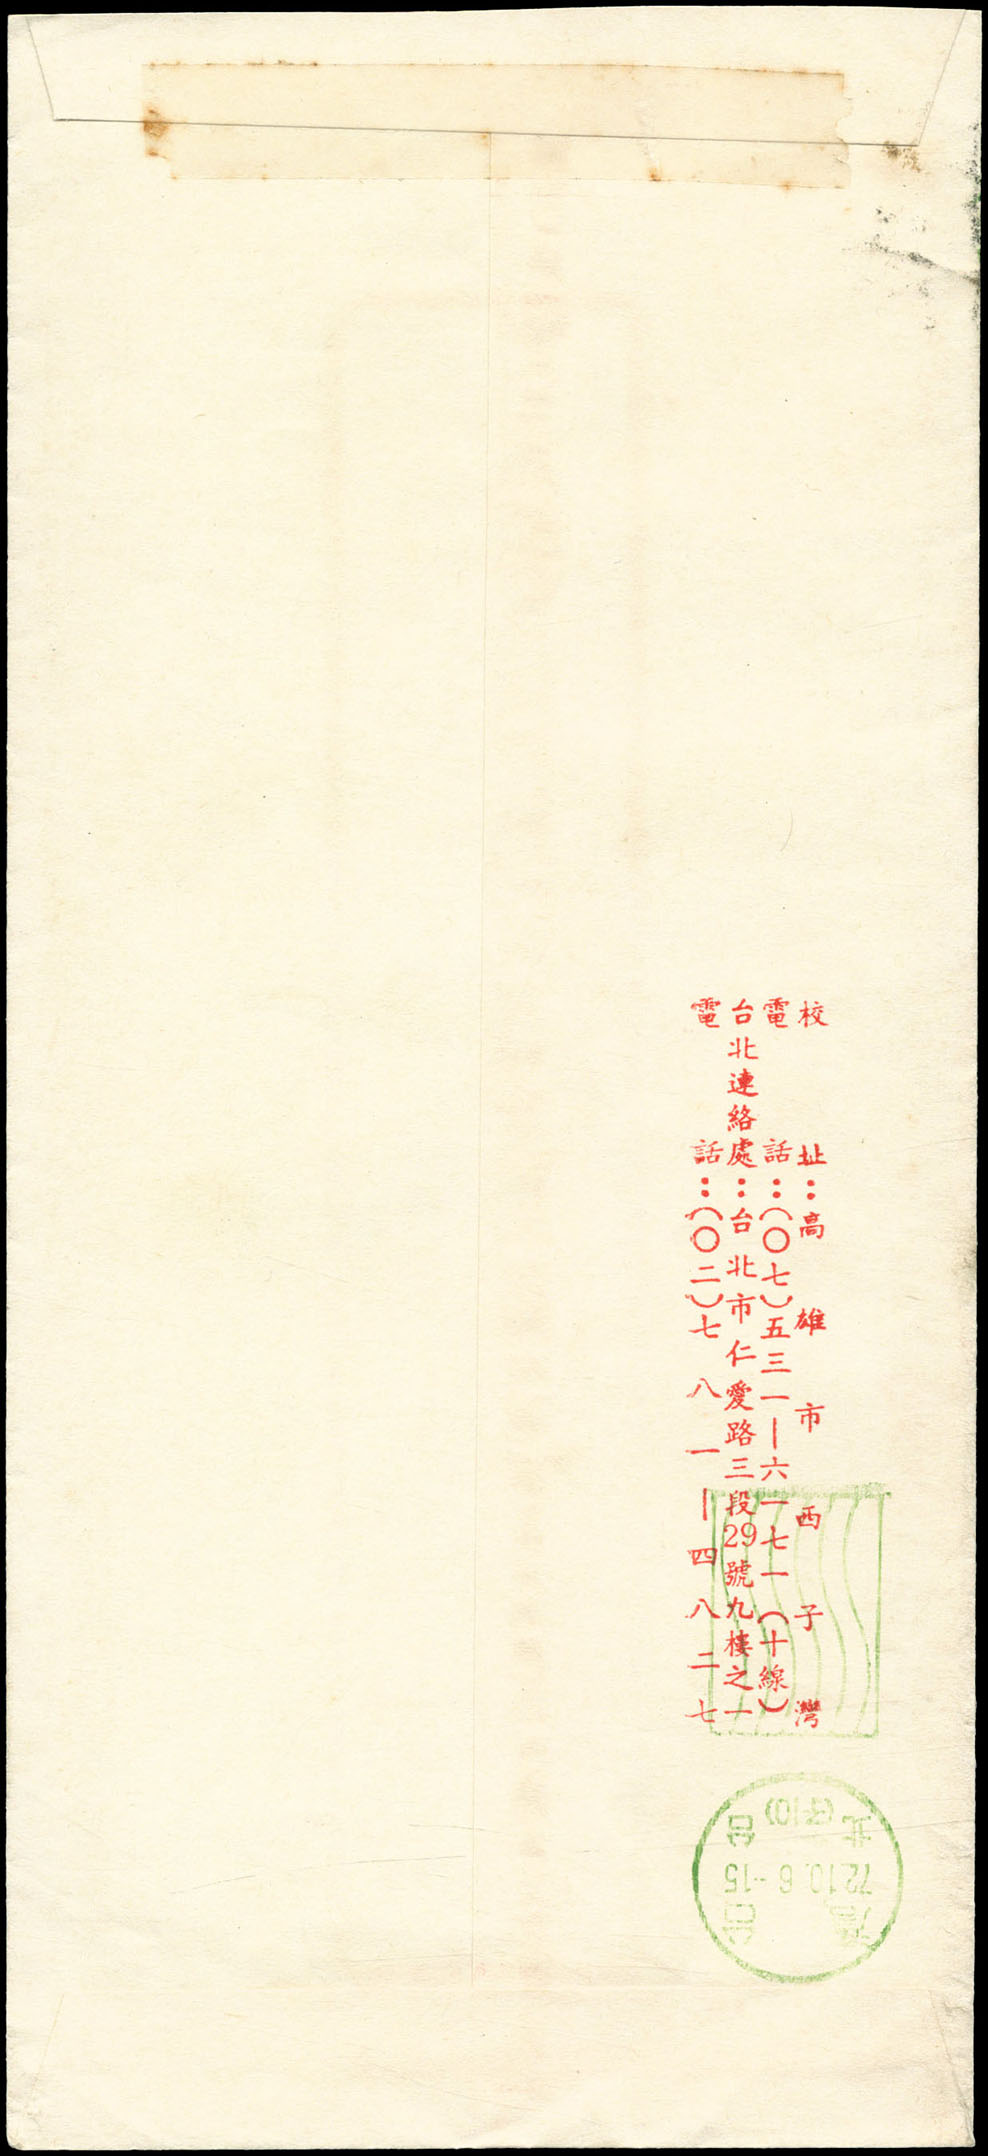 校址：高雄市西子灣
電話：（〇七）五三一｜六一七一（十線）
台北連絡處：台北市仁愛路三段29號九樓之一
電話：（〇二）七八一｜四八二七
台灣
72.10.6.-15
台北